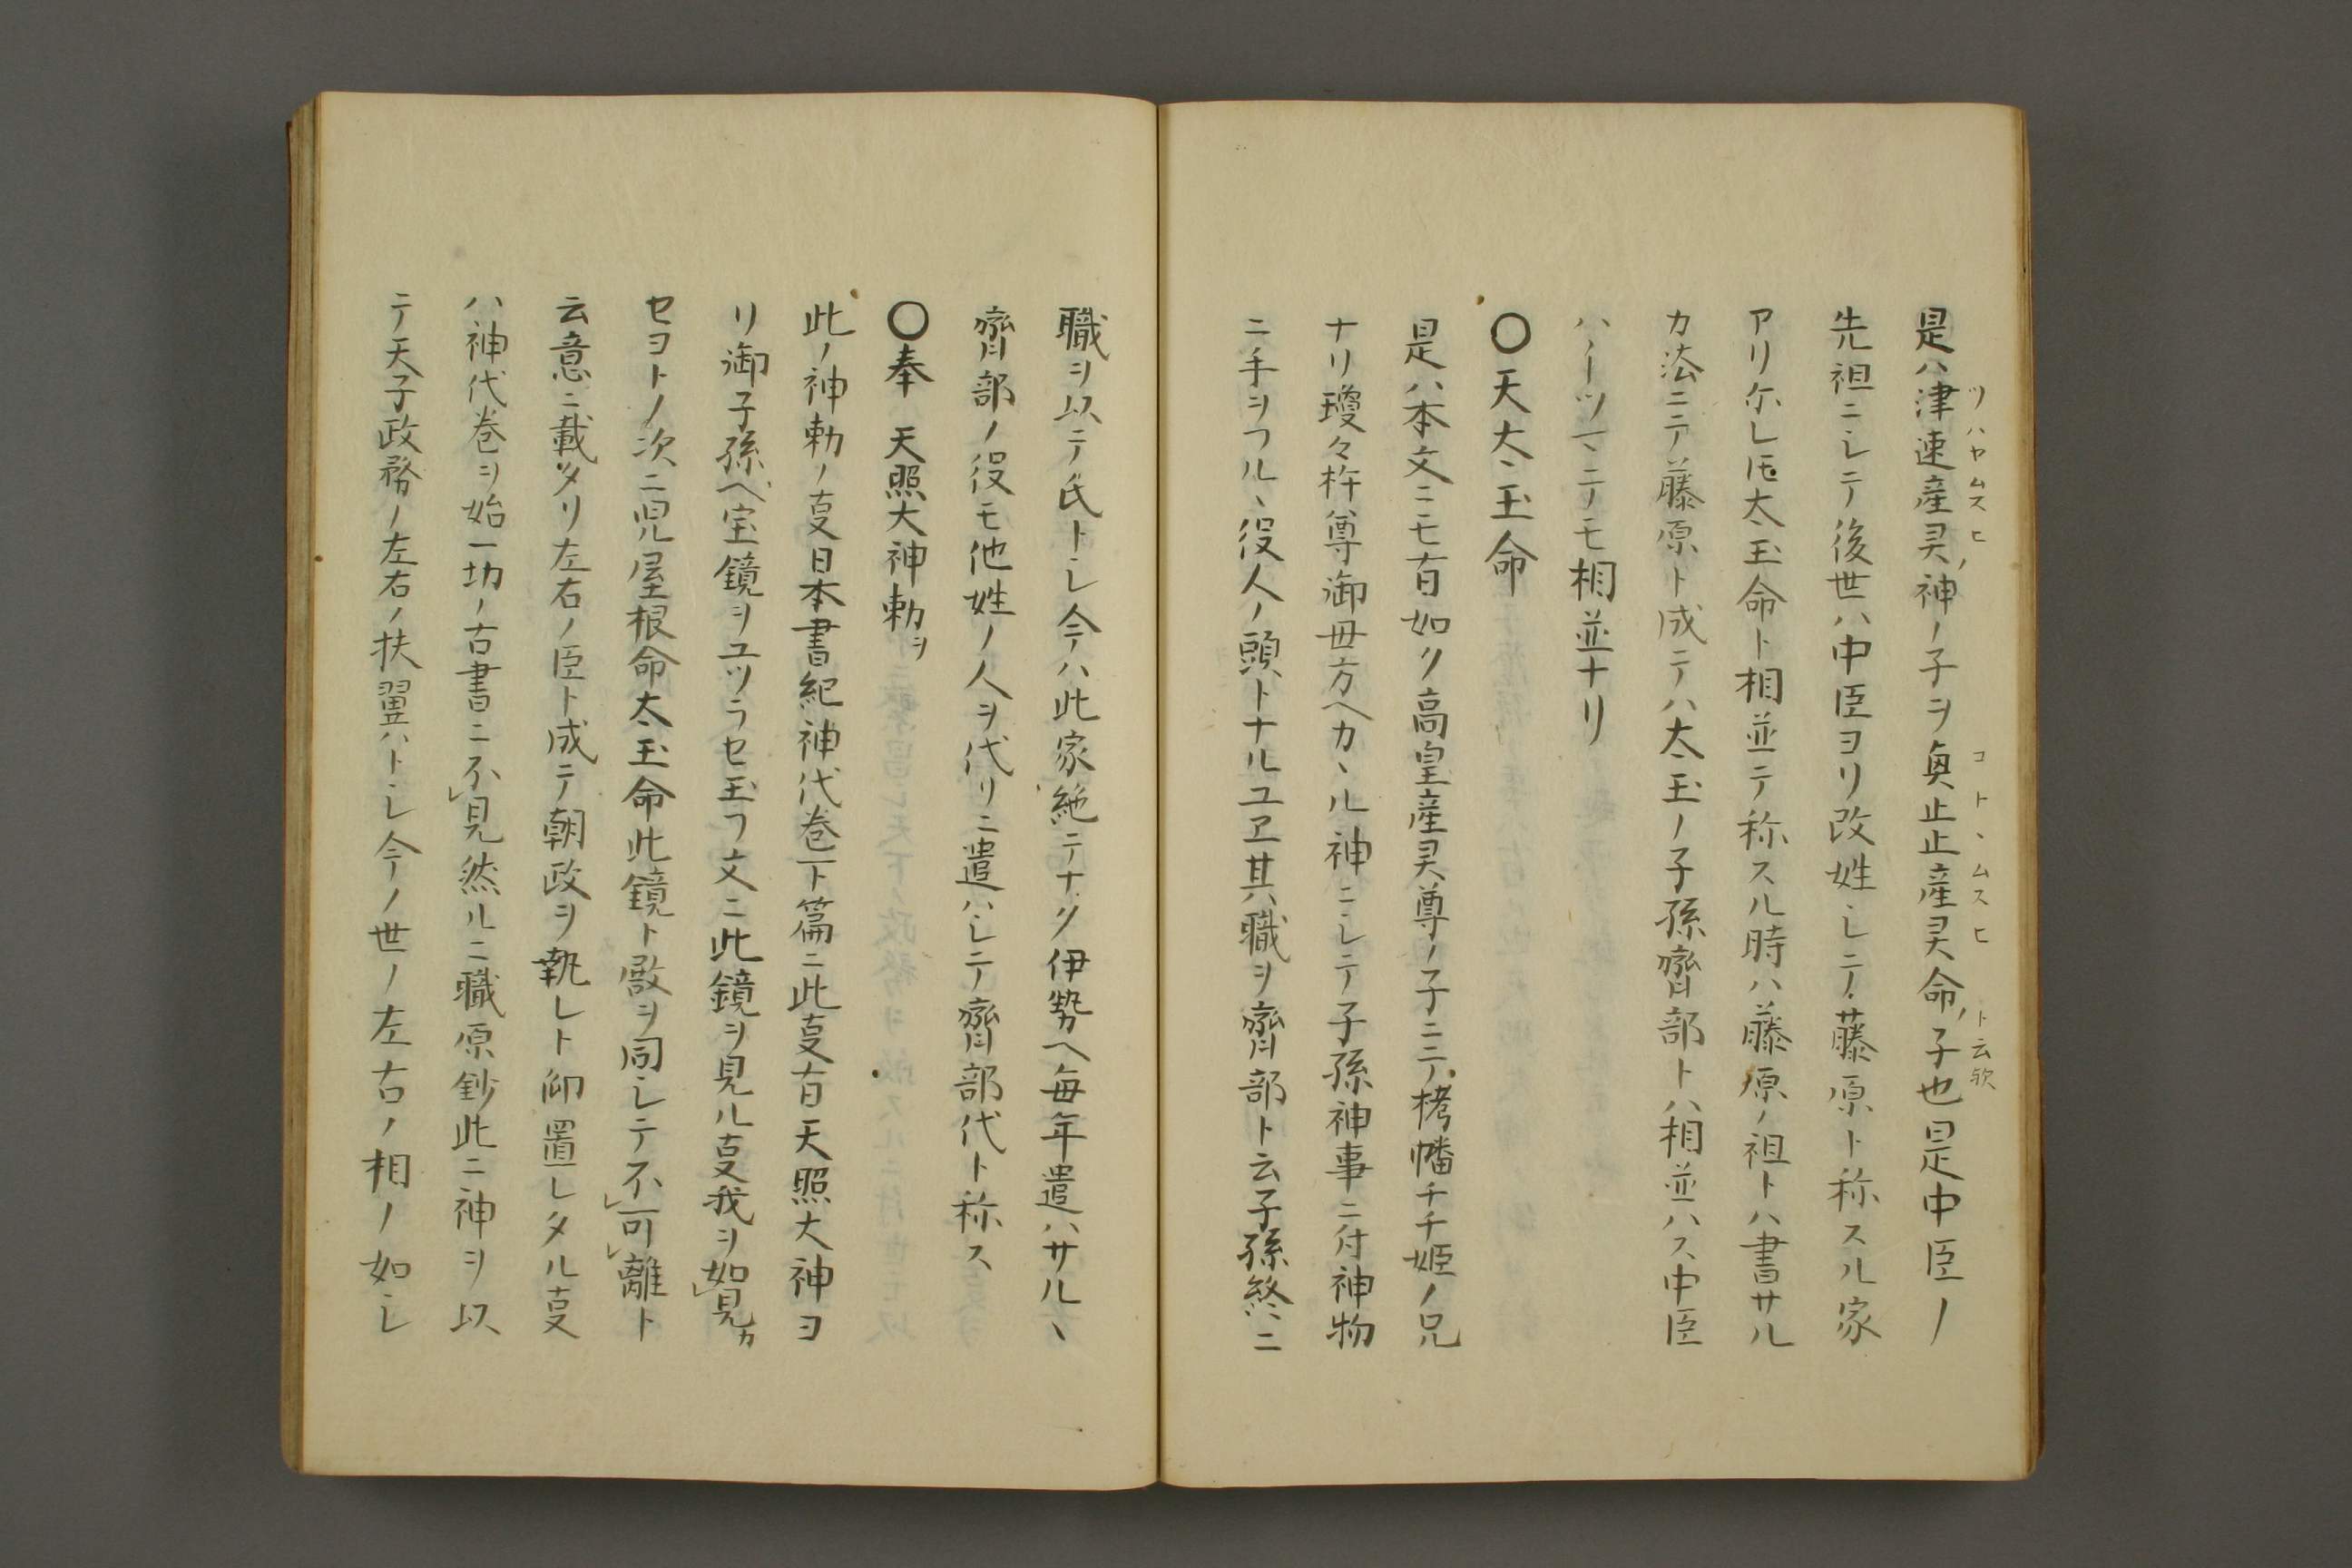 是ハ津速産灵神ノ子ヲ奥止止産灵命ノ子也是中臣ノ
ツハヤムスヒノ
コトヽムスヒ
ト云欤
先祖ニシテ後世ハ中臣ヨリ改姓シテ藤原ト称スル家
アリ尓レ𪜈太玉命ト相並テ称スル時ハ藤原ノ祖トハ書サル
カ法ニテ藤原ト成テハ太玉ノ子孫齋部トハ相並ハス中臣
ハ一ツヿニテモ相並ナリ
〇天太玉命
是ハ本文ニモ有如ク高皇産灵尊ノ子ニテ栲幡千千姫ノ兄
ナリ瓊々杵尊御毋方ヘカヽル神ニシテ子孫神事ニ付神物
ニ手ヲフルヽ役人ノ頭トナルユヱ其職ヲ齋部ト云子孫終ニ
職ヲ以テ氏トシ今ハ此家絶テナク伊勢ヘ毎年遣ハサルヽ
齋部ノ役モ他姓ノ人ヲ代リニ遣ハシテ齋部代ト称ス
〇奉 天照大神勅ヲ
此ノ神勅ノ㕝日本書紀神代巻下篇ニ此㕝有天照大神ヨ
リ御子孫ヘ宝鏡ヲユツラセ玉フ文ニ此鏡ヲ見ル㕝我ヲ如見カ
セヨトノ次ニ児屋根命太玉命此鏡ト殿ヲ同シテ不可離ト
云意ニ載タリ左右ノ臣ト成テ朝政ヲ執レト仰置レタル㕝
ハ神代巻ヲ始一切ノ古書ニ不見然ルニ職原鈔此ニ神ヲ以
テ天子政務ノ左右ノ扶翼ハトシ今ノ世ノ左右ノ相ノ如シ